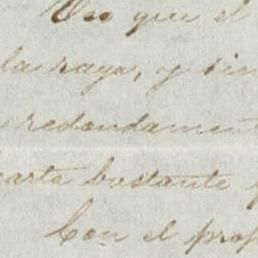 Veo que el
la raya, y sin
redondament
carta bastante
Con el prop